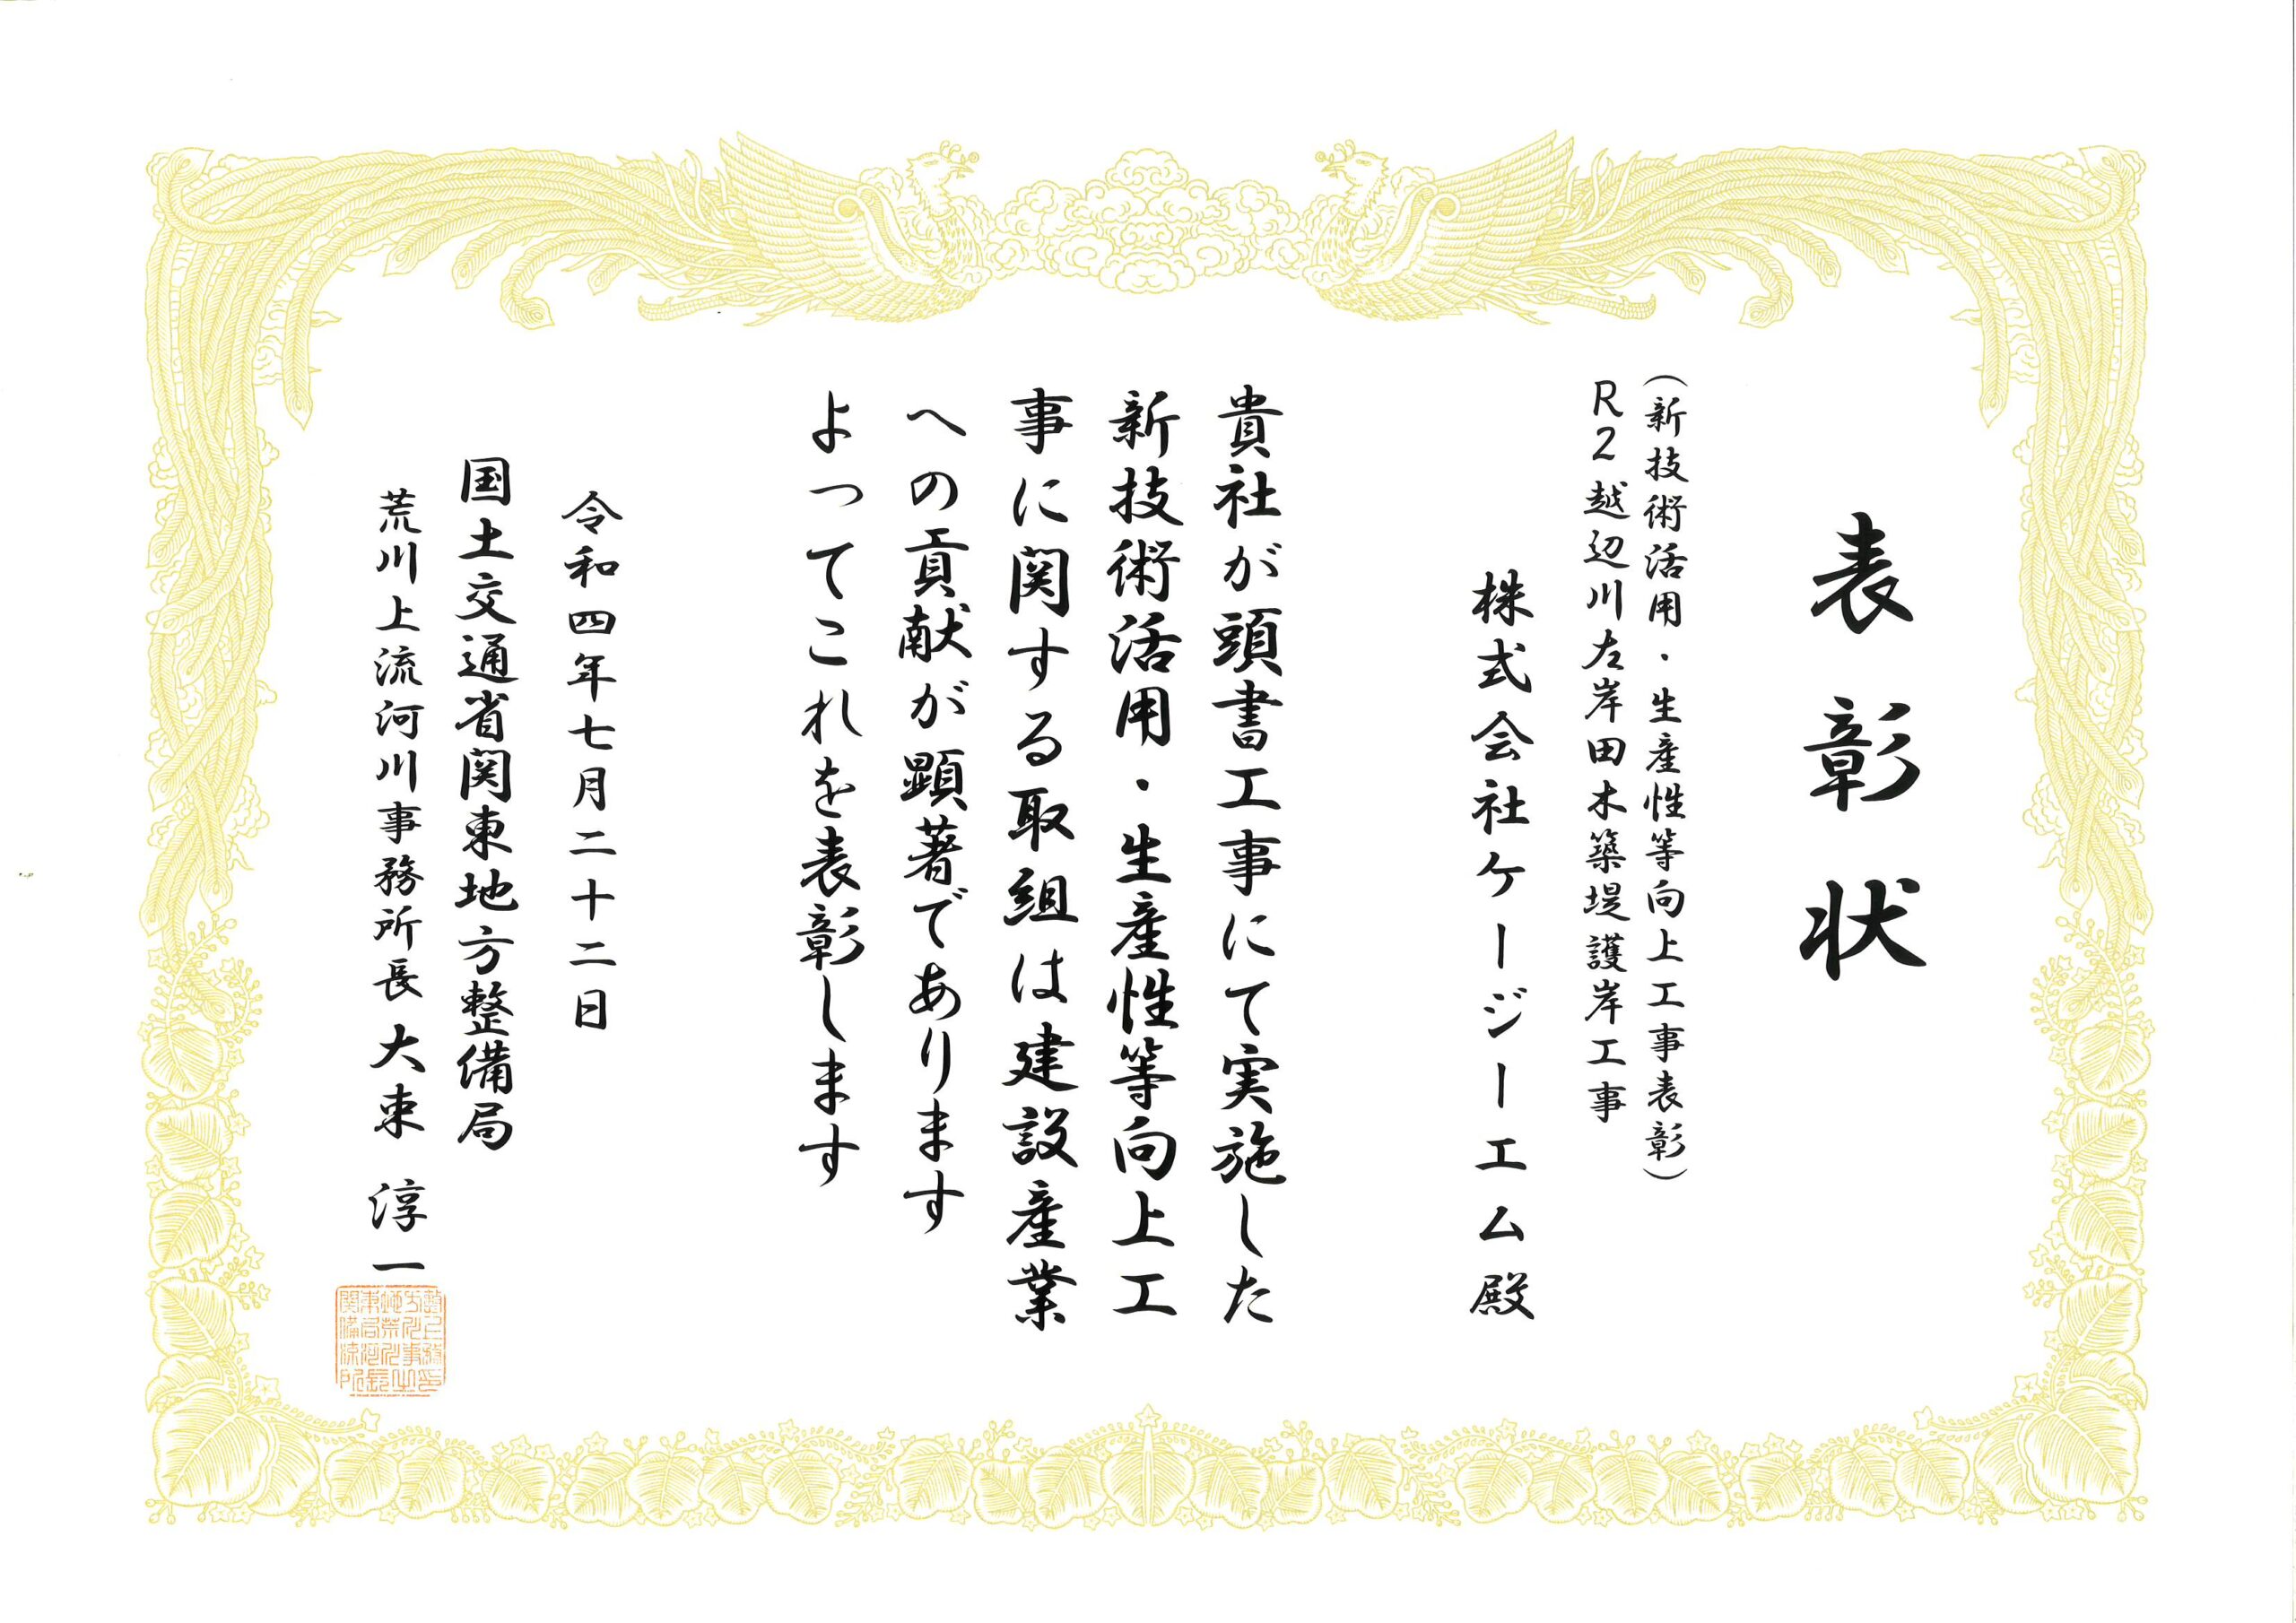 表彰状
（新技術活用・生産性等向上工事表彰）
R2越辺川左岸田木築堤護岸工事
株式会社ケージーエム殿
貴社が頭書工事にて実施した
新技術活用・生産性等向上工
事に関する取組は建設産業
への貢献が顕著であります
よってこれを表彰します
令和四年七月二十二日
国土交通省関東地方整備局
荒川上流河川事務所長 大束 淳一